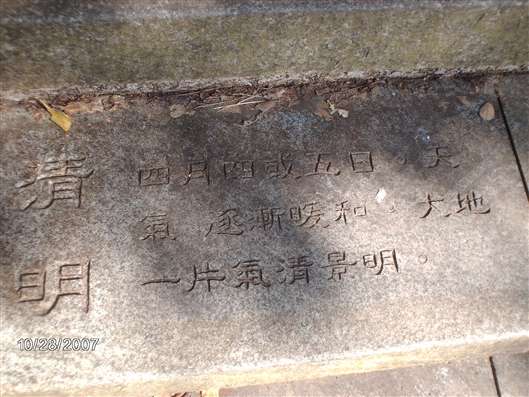 清明
四月四或五日，天
氣逐漸暖和，大地
一片氣清景明。
10/28/2007